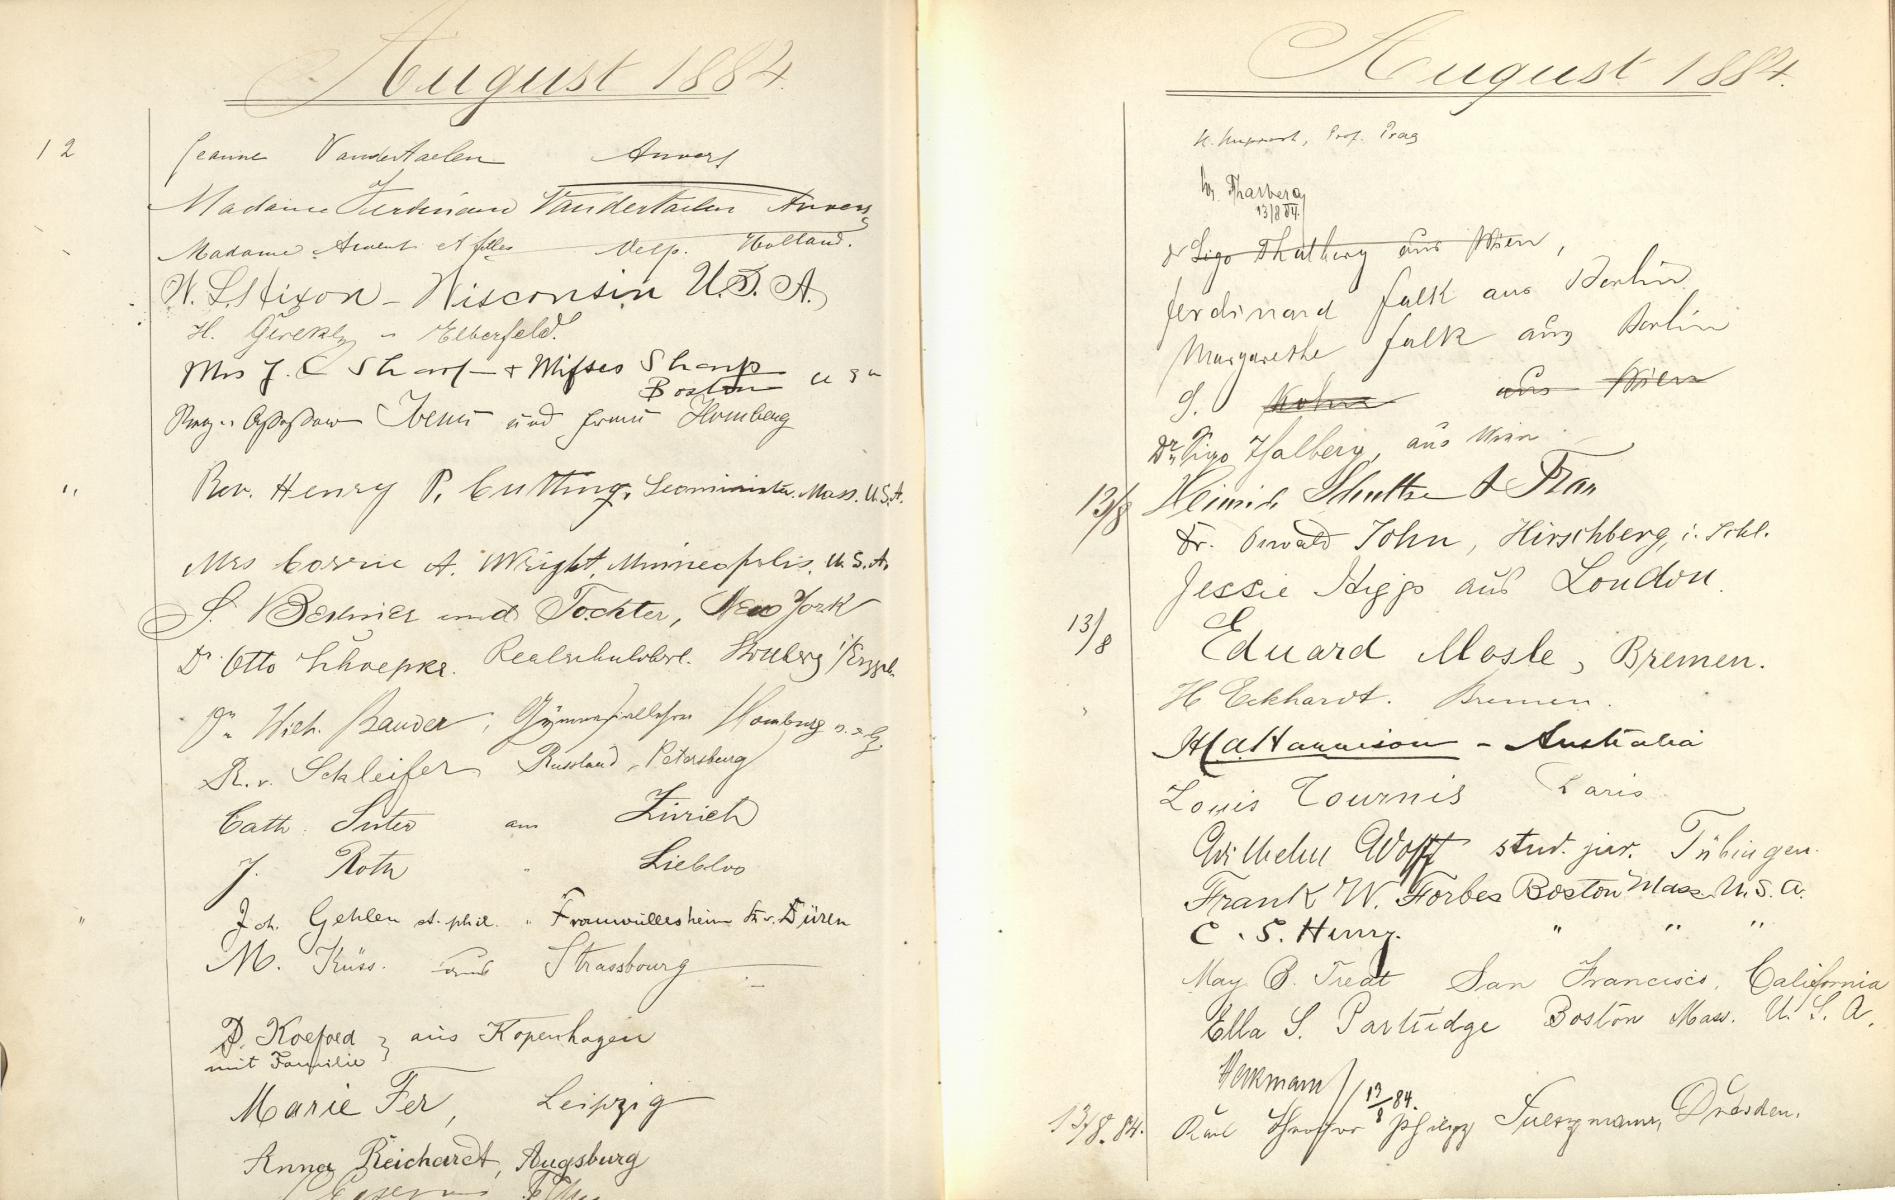 August 1884.
12
Jeanne Vandertaelen Anvers
Madame Ferdinand Vandertaelen Anvers
Madame et filles Velp. Holland.
W. L. Hixon - Wisconsin U.S.A.
H. - Elberfeld.
Mrs J. C Sharp & Misses Sharp
Boston U S A
und Frau Homberg
" Rev. Henry P. Cutting, Leominster. Mass. U.S.A.
Mrs Corrie A. Wright, Minneapolis, U.S.A.
S. und Tochter, New York
Dr Otto Realschuloberl. i/Erzgeb.
Dr Wilh. Bauder, Gymnasiallehrer Homburg
R. v. Schleifer Russland, Petersburg
Cath. Suter aus Zürich
J. Roth "
" Joh. Gehlen st. phil. " Frauwüllesheim Kr. Düren
M. Küss. aus Strassbourg
D. Koefoed } aus Kopenhagen
mit Familie
Marie Fer, Leipzig
Anna Reichardt, Augsburg
August 1884.
Prof. Prag
Dr. Thalberg
13/8 84.
Dr Sigo Thalberg aus Wien,
Ferdinand Falk aus Berlin
Margarethe Falk aus Berlin
S. Kohn aus Wien
Dr. Sigo Thalberg, aus Wien
13/8 Heinrich Schultze & Frau
Dr. Oswald John, Hirschberg, i. Schl.
Jessie Higgs aus London.
13/8 Eduard Mosle, Bremen.
H Eckhardt. Bremen.
H. A. Harrison - Australia
Louis Tournis Paris
Wilhelm Wolff stud. jur. Tübingen.
Frank W. Forbes Boston Mass. U.S.A.
C. S. Henry. " " "
May B. Treat San Francisco, California
Ella S. Partridge Boston Mass. U.S.A.
13/8 84.
13/8.84. Karl Dresden.